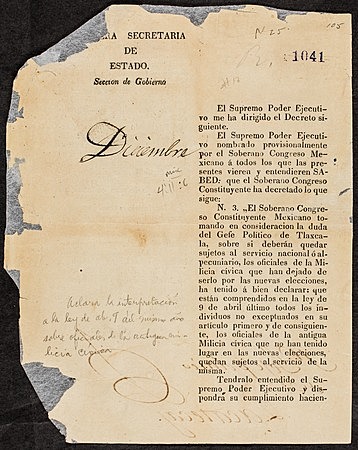 N 25.
105
1041
RA SECRETARIA
DE
ESTADO.
Seccion de Gobierno
Diciembre
El Supremo Poder Ejecuti-
vo me ha dirigido el Decreto si-
guiente.
El Supremo Poder Ejecuti-
vo nombrado provisionalmente
por el Soberano Congreso Me-
xicano á todos los que las pre-
sentes vieren y entendieren SA-
BED: que el Soberano Congreso
Constituyente ha decretado lo que
sigue:
N. 3. „El Soberano Congre-
so Constituyente Mexicano to-
mando en consideracion la duda
del Gefe Político de Tlaxca-
la, sobre si deberán quedar
sujetos al servicio nacional ó al
pecuniario, los oficiales de la Mi-
licia cívica que han dejado de
serlo por las nuevas elecciones,
ha tenido á bien declarar: que
están comprendidos en la ley de
9 de abril último todos los in-
dividuos no exceptuados en su
artículo primero y de consiguien-
te, los oficiales de la antigua
Milicia cívica que no han tenido
lugar en las nuevas elecciones,
quedan sujetos al servicio de la
misma.
Tendralo entendido el Su-
premo Poder Ejecutivo y dis-
pondra su cumplimiento hacien-
Aclara la interpretación
a la ley de ab. 9 del mismo año
sobre oficiales de la antigua mi-
licia cívica